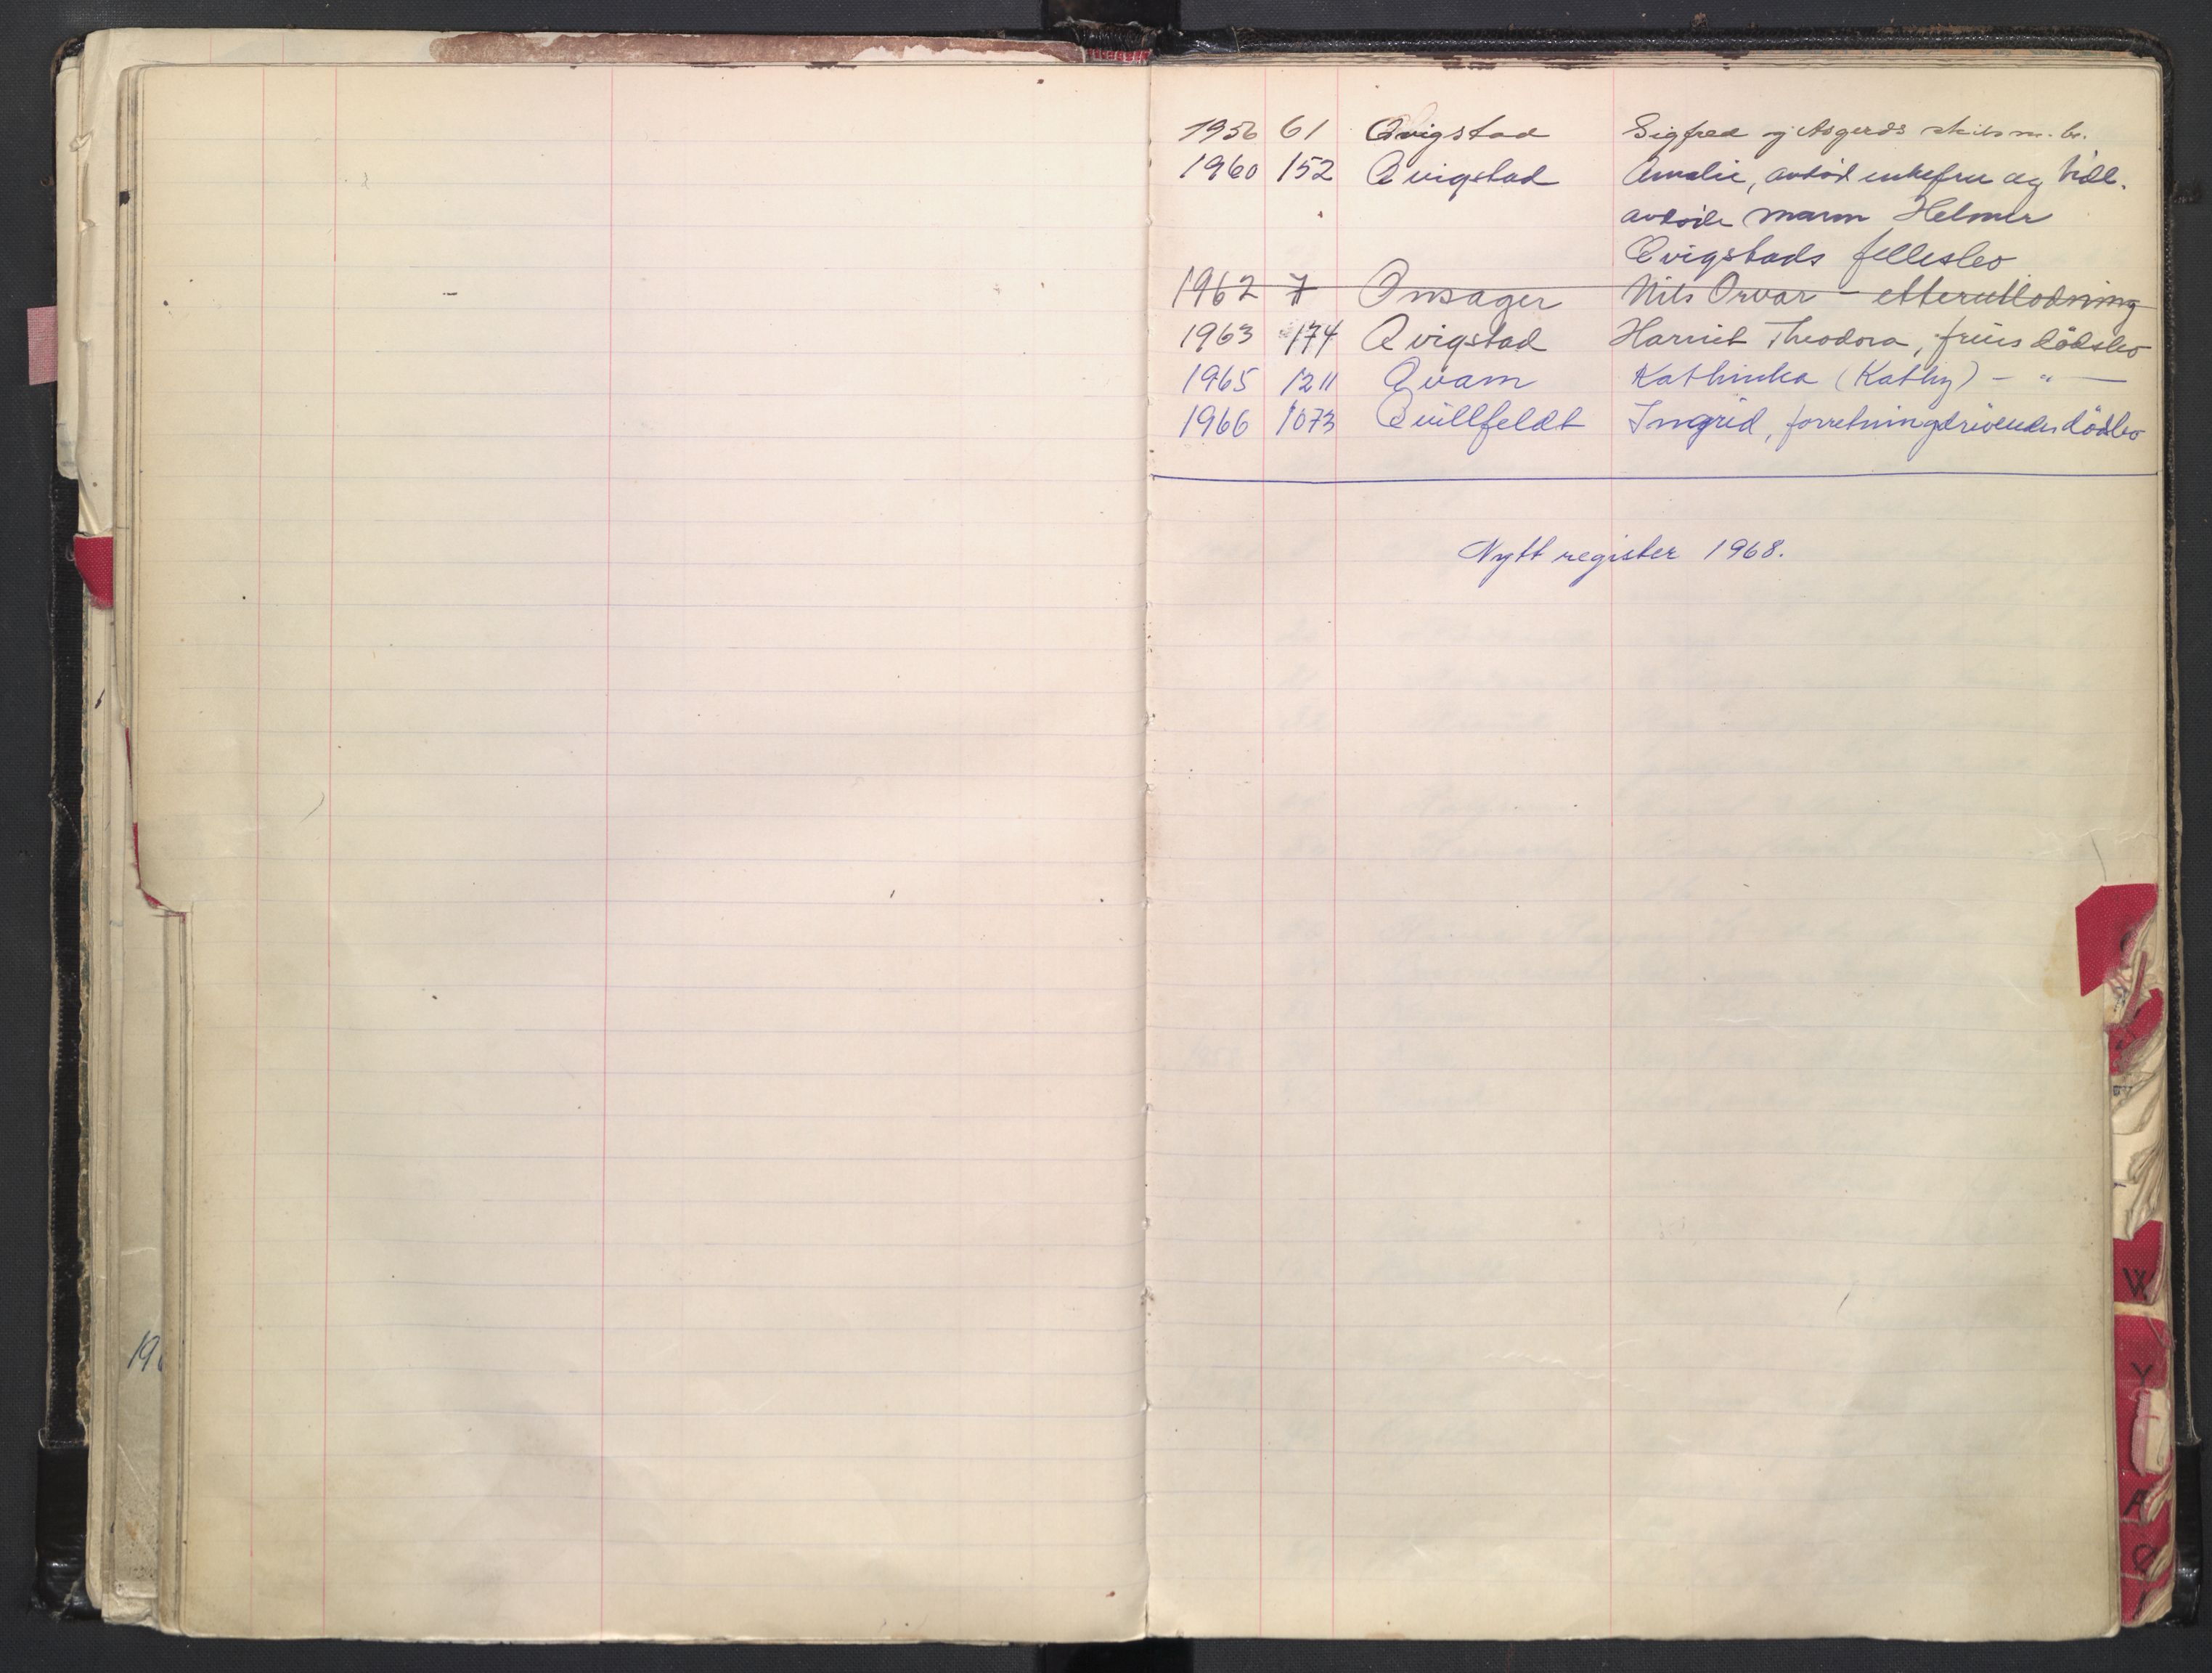 1956 61 Qvigstad Sigfred og Asgerds skilsm. b.
1960 152 Qvigstad Amalie, avdöd enkefru og tidl.
avdöde mann Helmer
Qvigstads fellesbo
1962 7 Onsager Nils Orvar - etterutlodning
1963 174 Qvigstad Harriet Theodora, frues dödsbo
1965 1211 Qvam Kathinka (Kathy) - " -
1966 1073 Quillfeldt Ingrid, forretningsdrivendes dödsbo
Nytt register 1968.
W
Y
Ø